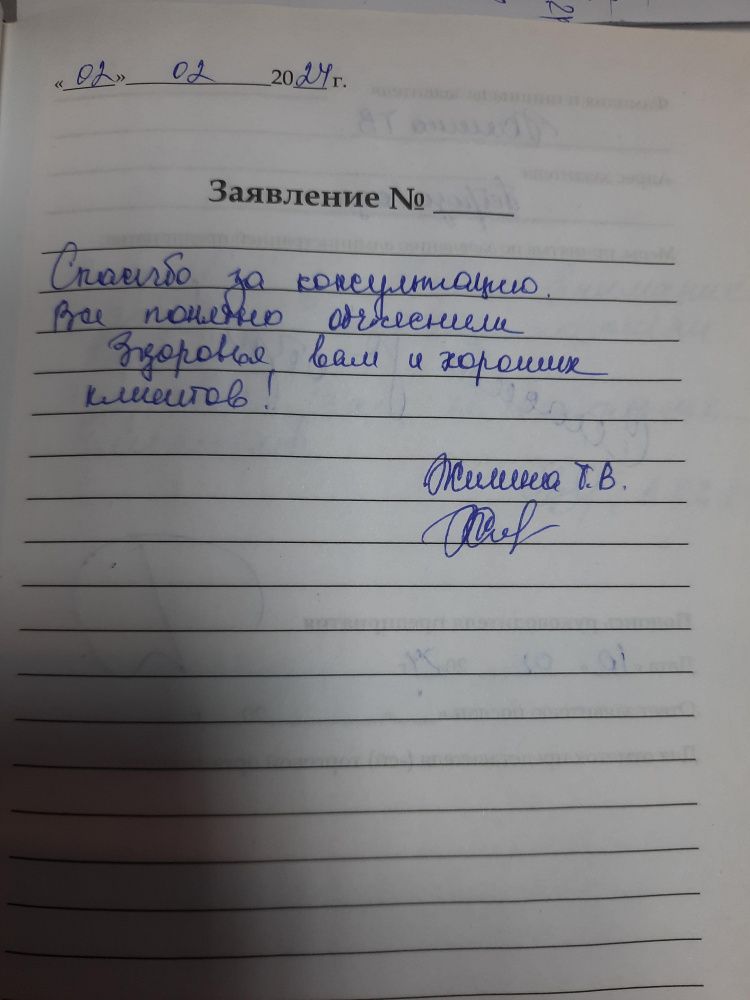 «02» 02 2024 г.
Заявление № 
Спасибо за консультацию.
Все понятно объяснили
Здоровья вам и хороших
клиентов!
Жилина Т.В.